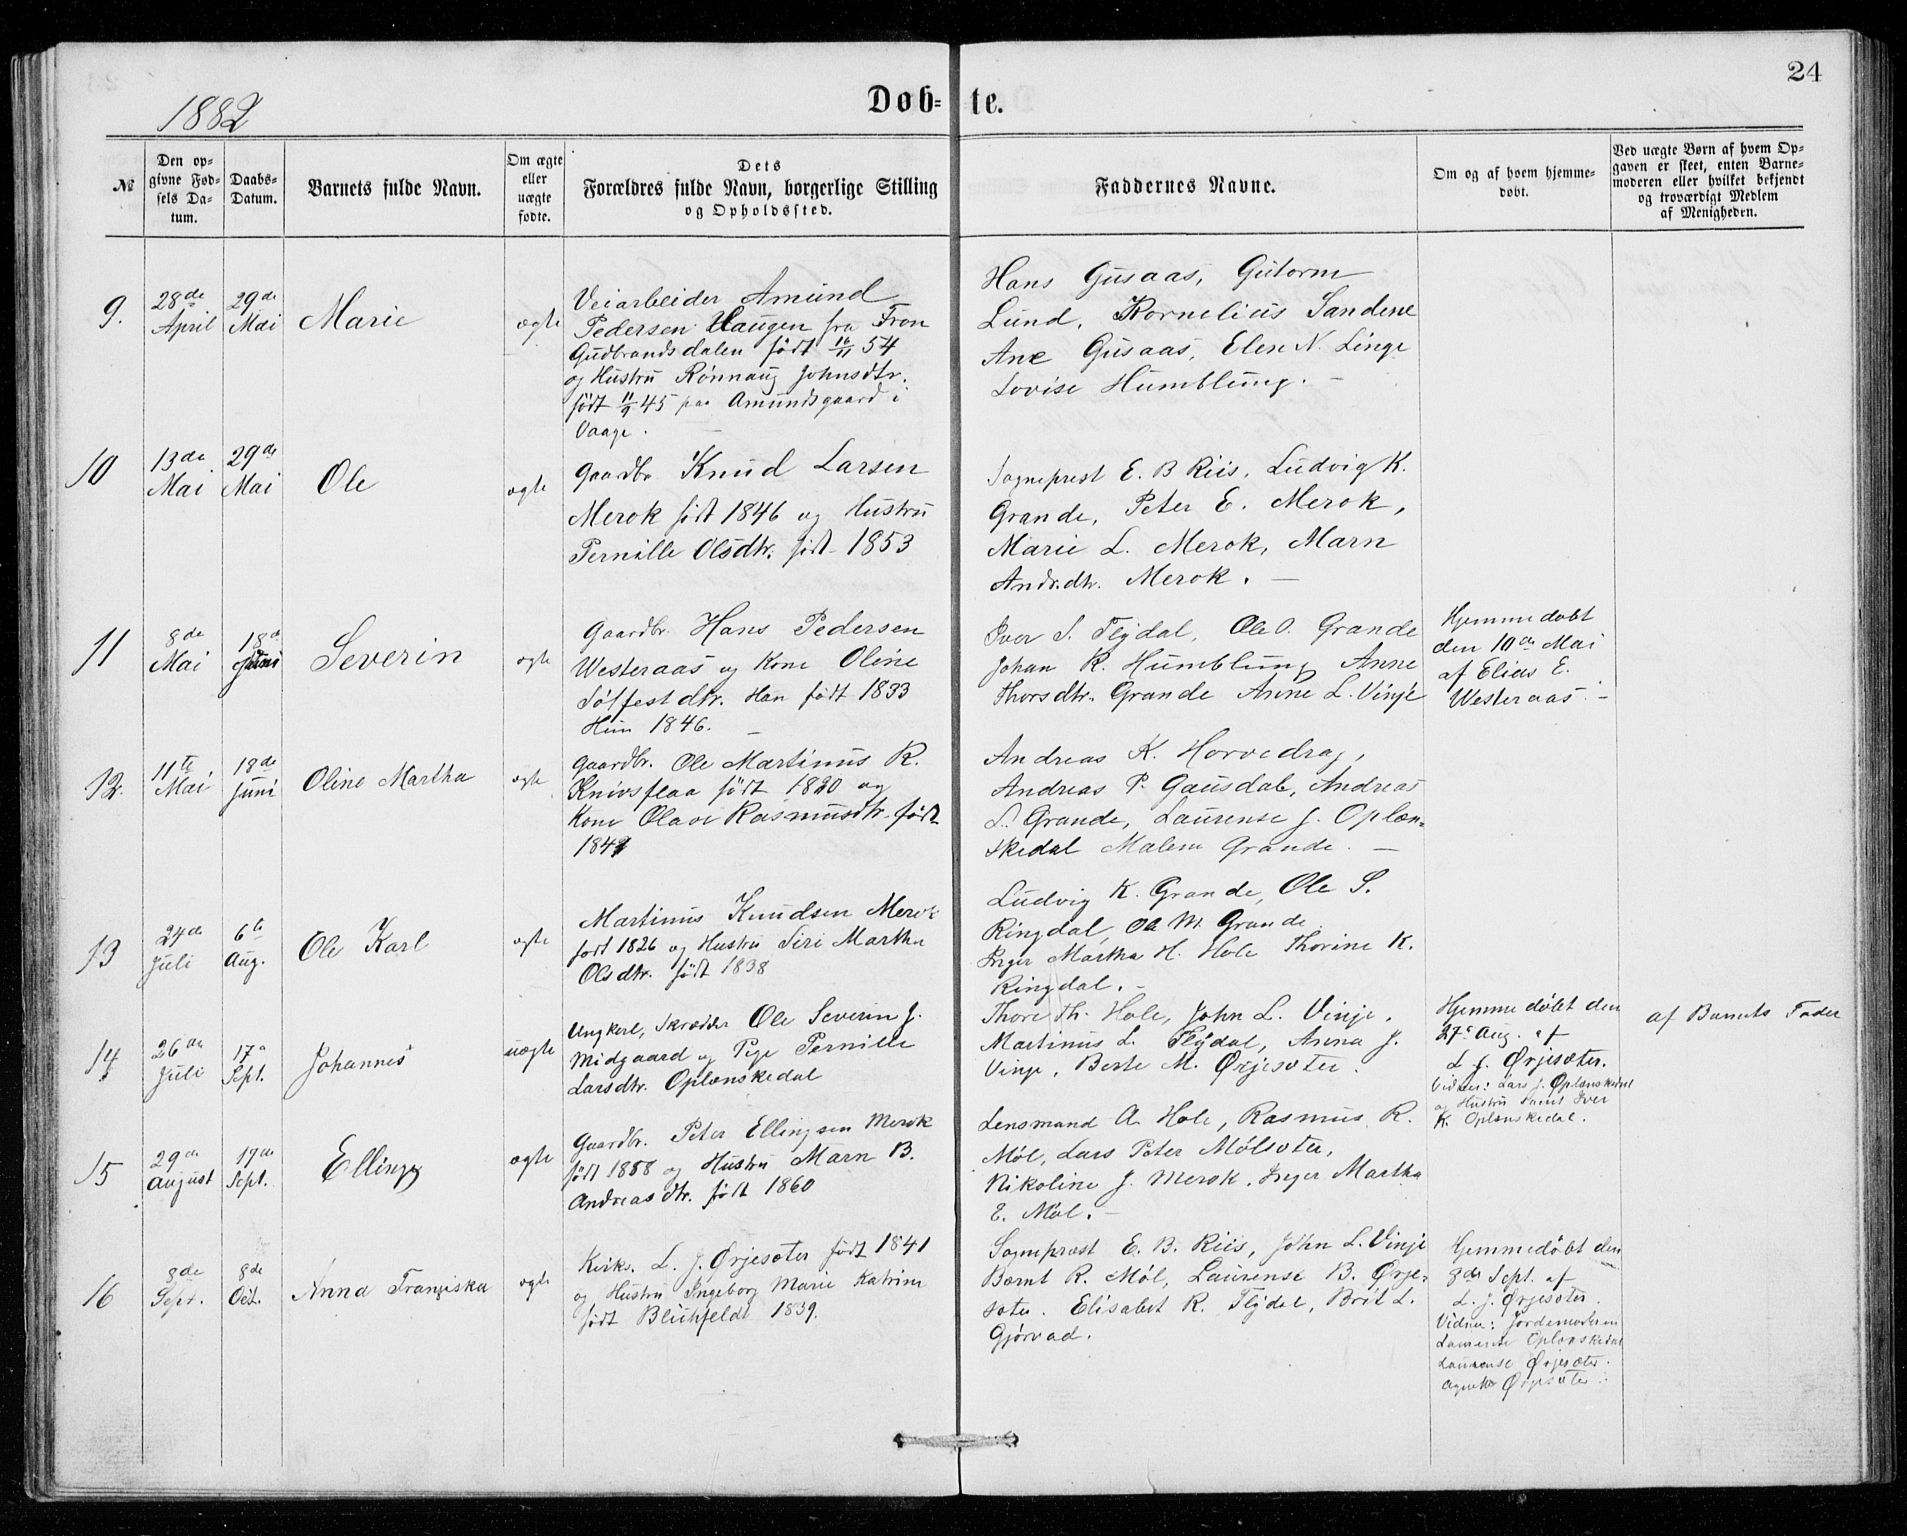 24
1882
Døb-
te.
№
Den op-
givne Fød-
sels Da-
tum.
Daabs-
Datum.
Barnets fulde Navn.
Om ægte
eller
uægte
fødte.
Dets
Forældres fulde Navn, borgerlige Stilling
og Opholdssted.
Faddernes Navne.
Om og af hvem hjemme-
døbt.
Ved uægte Børn af hvem Op-
gaven er skeet, enten Barne-
moderen eller hvilket bekjendt
og troværdigt Medlem
af Menigheden.
9.
28de
April
29de
Mai
Marie
ægte
Veiarbeider Amund
Pedersen Haugen fra Fron
Gudbrandsdalen født 16/11 54
og Hustru Rønnaug Johnsdtr.
født 11/9 45 paa Amundsgaard i
Vaage.
Hans Gusaas, Gutorm
Lund, Kornelius Sandene
Ane Gusaas, Elen N. Linge
Lovise Humblung. –
10
13de
Mai
29de
Mai
Ole
ægte
Gaardbr Knud Larsen
Merok født 1846 og Hustru
Pernille Olsdtr. født 1853
Sogneprest E. B Riis, Ludvig K.
Grande, Peter E. Merok,
Marie L. Merok, Marn
Andr.dtr. Merok. –
11
8de
Mai
18de
Juni
Severin
ægte
Gaardbr. Hans Pedersen
Westeraas og Kone Oline
Sølfestdtr. Han født 1833
Hun 1846. –
Iver S. Flydal, Ole O. Grande
Johan K. Humblung Anne
Thorsdtr. Grande Anne L. Vinje
Hjemmedøbt
den 10de Mai
af Elias E.
Westeraas. –
12.
11te
Mai
18de
Juni
Oline Martha
ægte
Gaardbr. Ole Martinus R.
Knivsflaa født 1820 og
Kone Olave Rasmusdtr. født
184
Andreas K. Horvedrag,
Andreas P. Gausdal, Andreas
S. Grande, Laurense J. Oplæn-
skedal Malene Grande. –
13
24de
Juli
6te
Aug.
Ole Karl
ægte
Martinus Knudsen Merok
født 1826 og Hustru Siri Martha
Olsdtr. født 1838
Ludvig K. Grande, Ole S.
Ringdal, Ole M. Grande,
Inger Martha H. Hole Thorine K.
Ringdal. –
14
26de
Juli
17de
Sept.
Johannes
uægte
Ungkerl, Skrædder Ole Severin J.
Midgaard og Pige Pernille
Larsdtr. Oplænskedal
Thore Th. Hole, John L. Vinje,
Martinus L. Flydal, Anna J.
Vinje, Berte M. Ørjesæter.
Hjemmedøbt den
27de Aug. af
L. J. Ørjesæter.
Vidner: Lars J. Oplænskedal
og Hustru samt Iver
K. Oplænskedal.
af Barnets Fader
15
29de
August
17de
Sept.
Elling
ægte
Gaardbr. Peter Ellingsen Merok
født 1858 og Hustru Marn B.
Andreasdtr. født 1860
Lensmand A. Hole, Rasmus R.
Møl, Lars Peter Mølsæter,
Nikoline J. Merok, Inger Martha
E. Møl. –
16
8de
Sept.
8de
Oct.
Anna Franziska
ægte
Kirks. L. J. Ørjesæter født 1841
og Hustru Ingeborg Marie Katrine
født Blichfeldt 1839.
Sogneprest E. B. Riis, John L. Vinje
Bernt R. Møl, Laurense B. Ørje-
sæter. Elisabet R. Flydal, Brit L.
Gjørvad.
Hjemmedøbt den
8de Sept. af
L. J. Ørjesæter.
Vidner: Jordemoderen
Laurense Oplænskedal
Laurense Ørjesæter.
Agnethe Ørjesæter.